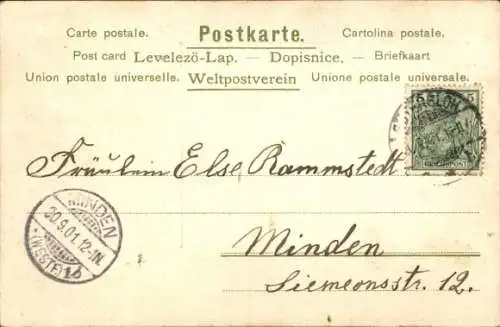 Carte postale. Postkarte. Cartolina postale.
Post card Levelezö-Lap. — Dopisnice. — Briefkaart
Union postale universelle. Weltpostverein Unione postale universale.
5
REICHSPOST
Fräulein Else Rammstedt
MINDEN
30.9.01.12-1N.
*(WESTF)1b
Minden
Simeonsstr. 12.